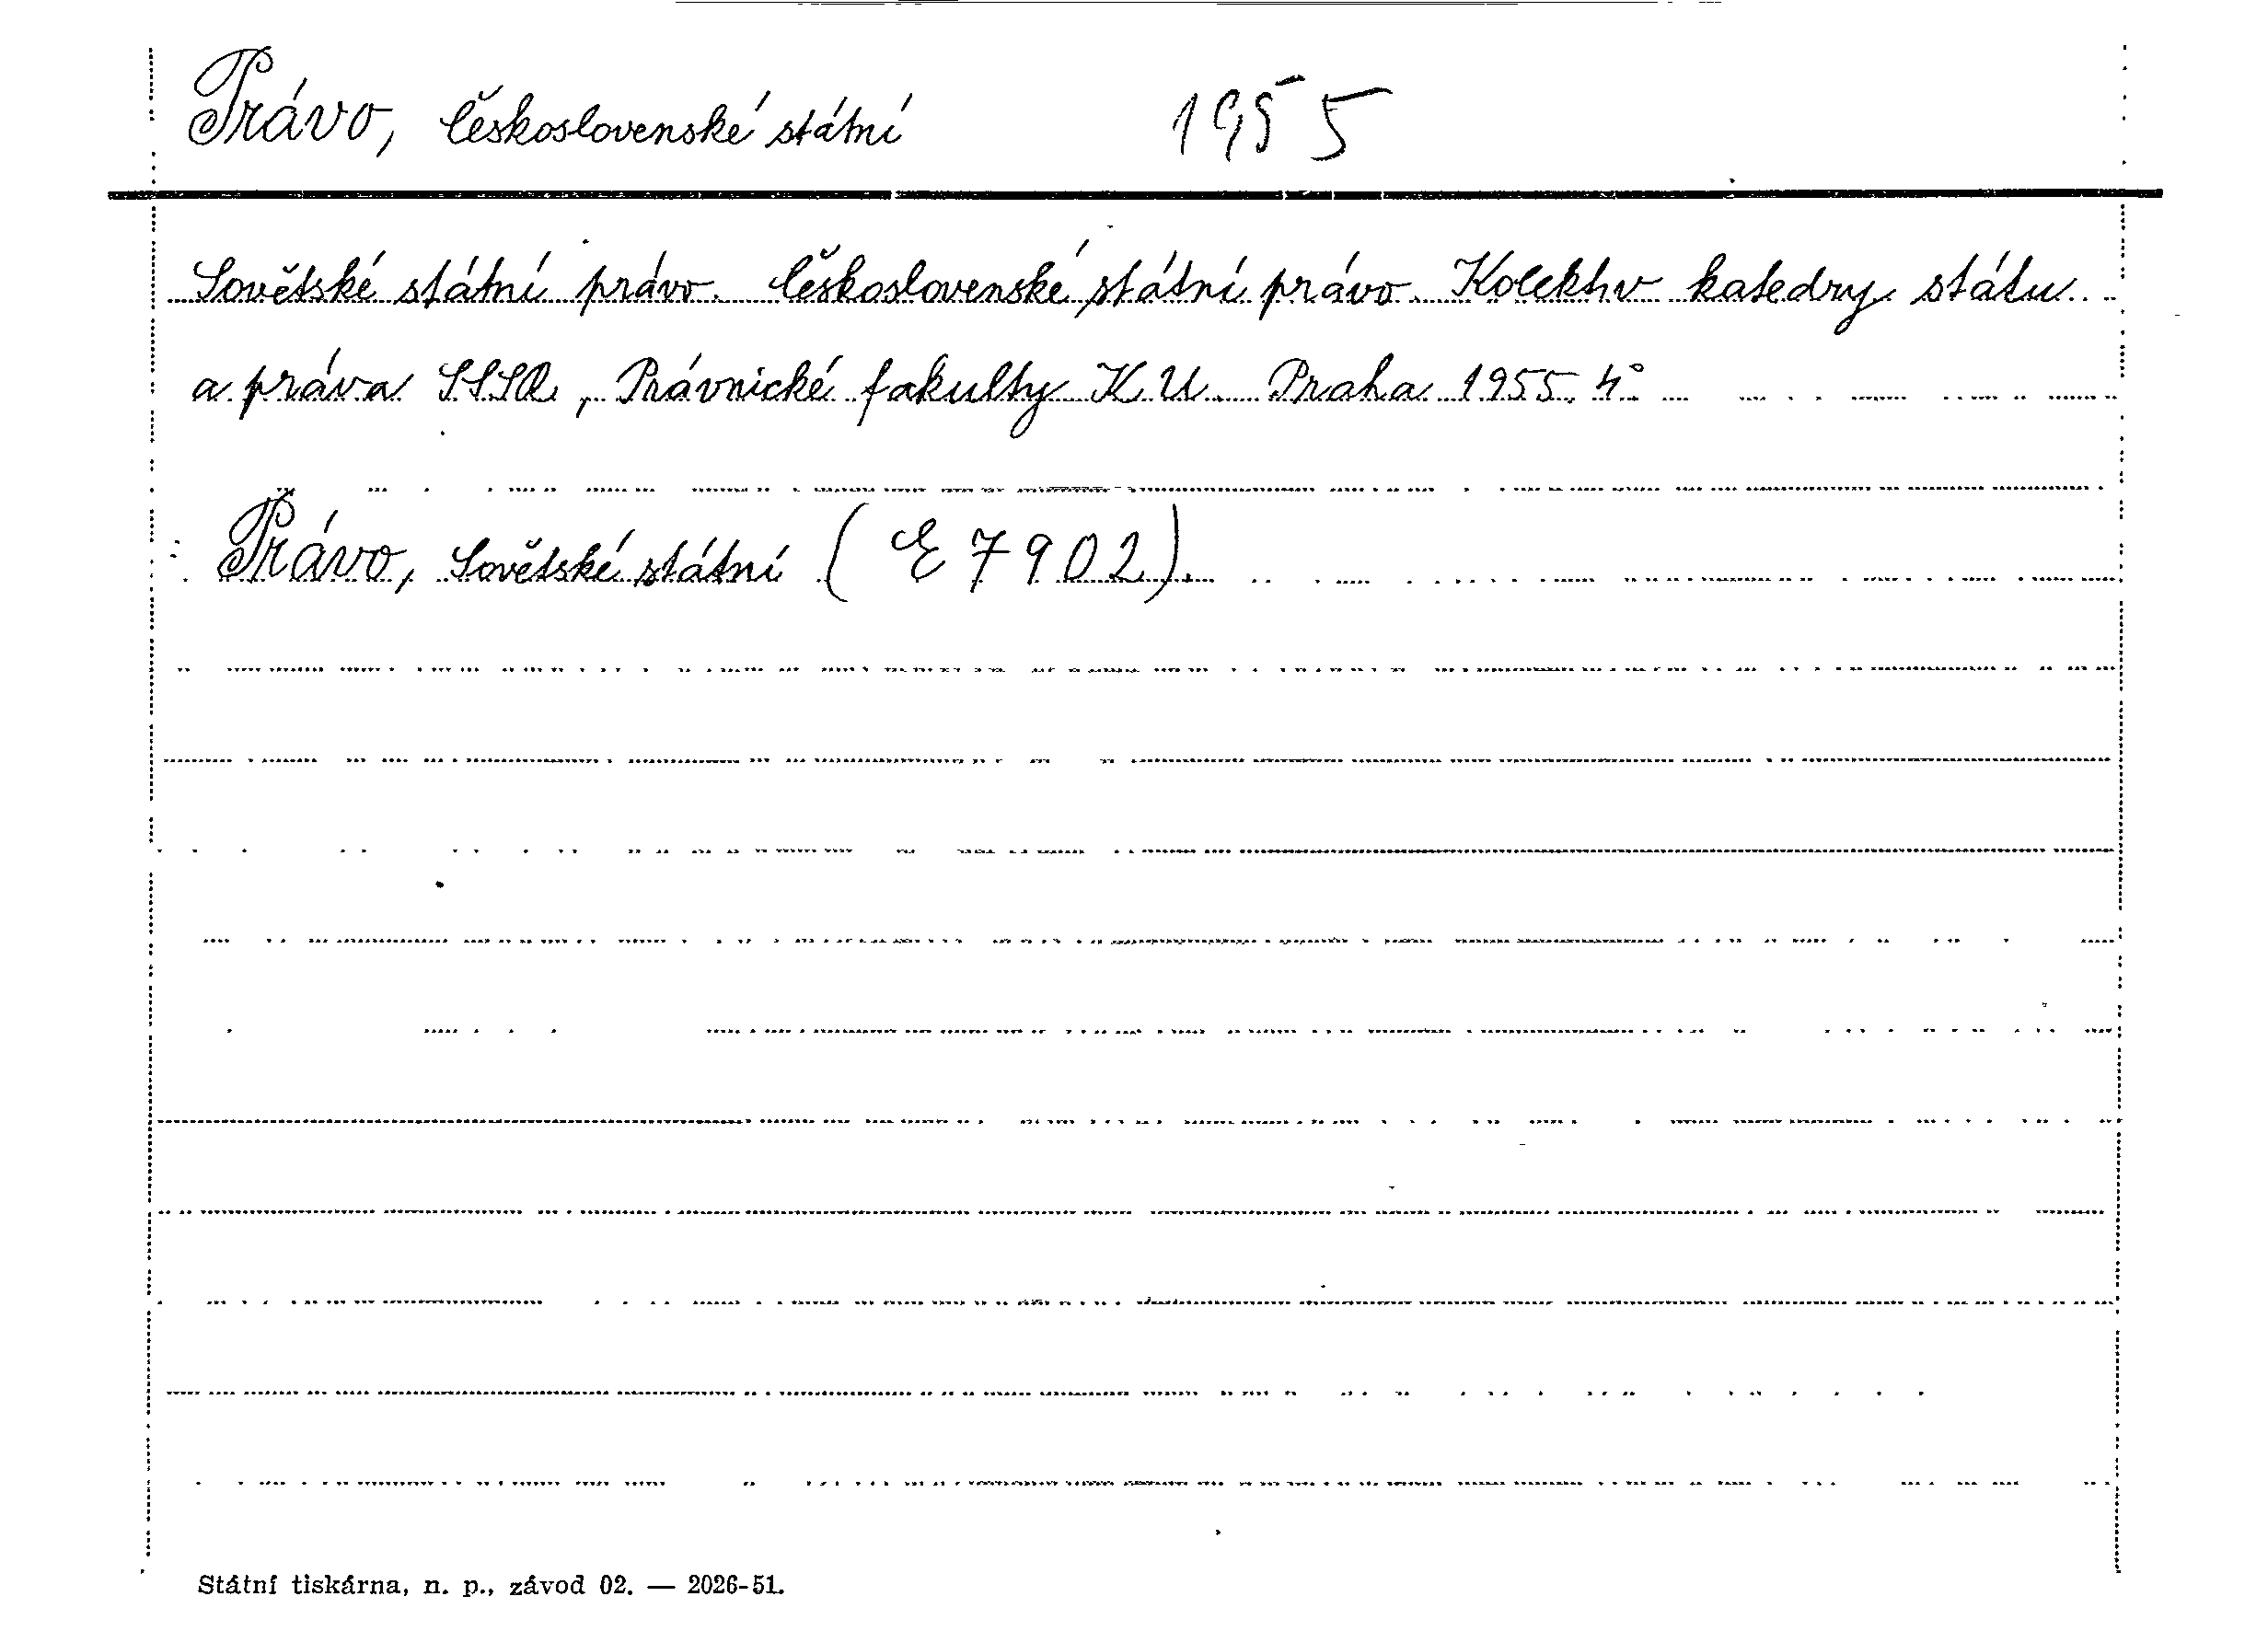 Právo, Československé státní 1955
Sovětské státní právo. Československé státní právo. Kolektiv katedry státu
a práva SSSR, Právnické fakulty K.U. Praha 1955. 4°
Právo, Sovětské státní (E 7902).
Státní tiskárna, n. p., závod 02. — 2026-51.